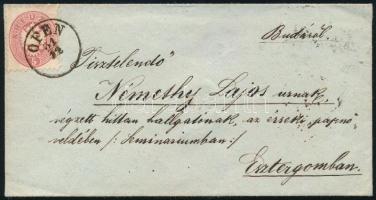 OFEN
21
12
Budáról.
Tisztelendő
Némethy Lajos urnak,
végzett hittan hallgatónak, az érseki papnö
veldében /: Seminariumban :/
Esztergomban.